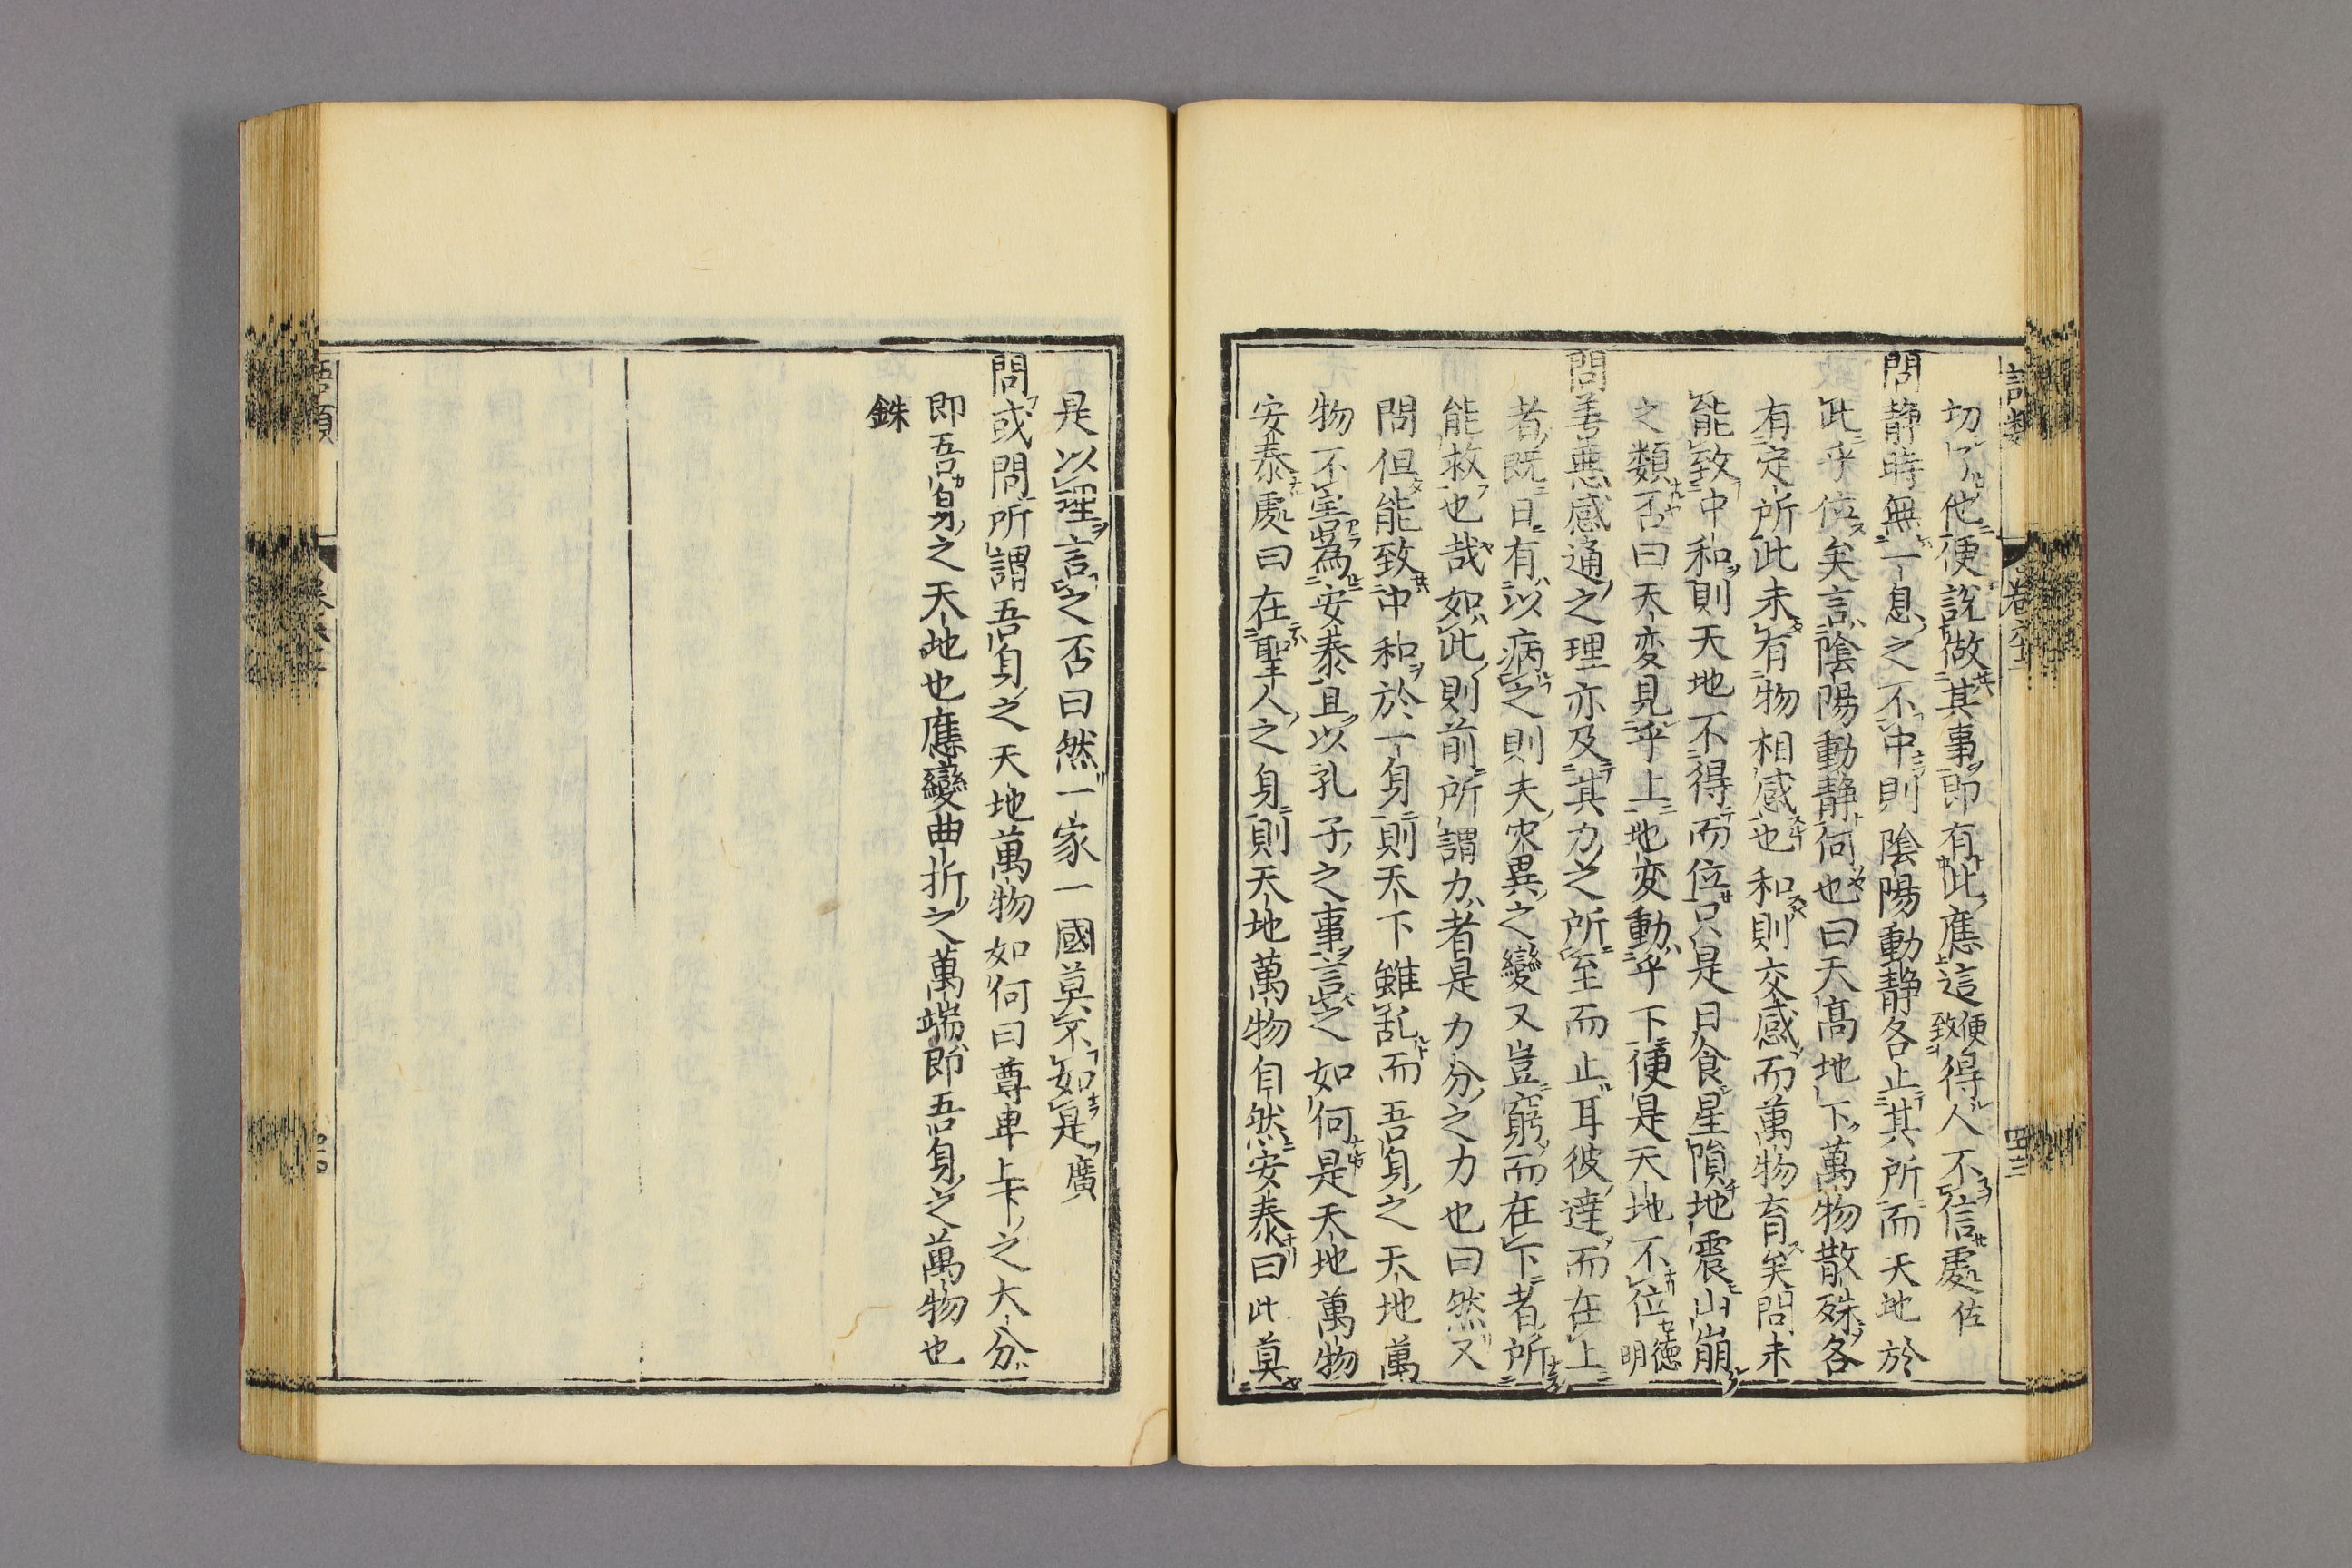 切了他便說做其事即有此應這便致得人不信處佐
問靜時無一息之不中則陰陽動靜各止其所而天地於
此乎位矣言陰陽動靜何也曰天高地下萬物散殊各
有定所此未有物相感也和則交感而萬物育矣問未
能致中和則天地不得而位只是日食星隕地震山崩
之類否曰天変見乎上地変動乎下便是天地不位德明
問善惡感通之理亦及其力之所至而止耳彼達而在上
者既曰有以病之則夫灾異之變又豈窮而在下者所
能救也哉如此則前所謂力者是力分之力也曰然又
問但能致中和於一身則天下雖乱而吾身之天地萬
物不害為安泰且以孔子之事言之如何是天地萬物
安泰處曰在聖人之身則天地萬物自然安泰曰此莫
是以理言之否曰然一家一國莫不如是廣
問或問所謂吾身之天地萬物如何曰尊卑上下之大分
即吾身之天地也應變曲折之萬端即吾身之萬物也
銖